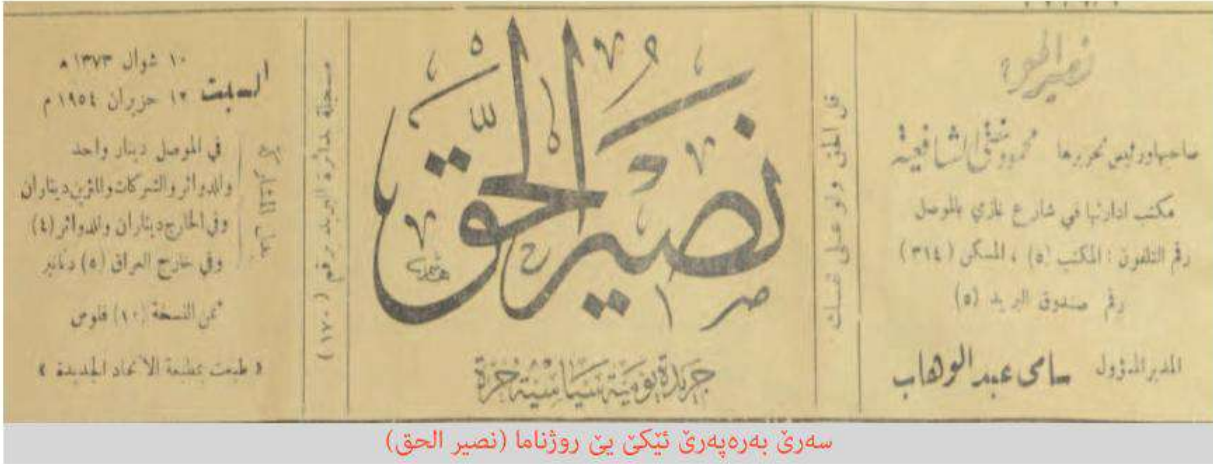 نصير الحق
صاحبها ورئيس تحريرها محمود مفتي الشافعية
مكتب ادارتها في شارع غازي بالموصل
رقم التلفون : المكتب (٥) ، المسكن (٣١٤)
رقم صندوق البريد (٥)
المدير المسؤول سامى عبد الوهاب
قل الحق ولو على نفسك
نصير الحق
جريدة يومية سياسية حرة
مسجلة لدائرة البريد برقم (١٧٠)
١٠ شوال ١٣٧٣ ه
السبت ١٢ حزيران ١٩٥٤ م
بدل
في الموصل دينار واحد
وللدوائر والشركات والمثرين ديناران
وفي الخارج ديناران وللدوائر (٤)
وفي خارج العراق (٥) دنانير
ثمن النسخة (١٠) فلوس
« طبعت بمطبعة الاتحاد الجديدة »
سەرێ بەرەپەرێ ئێکێ یێ روژناما (نصير الحق)